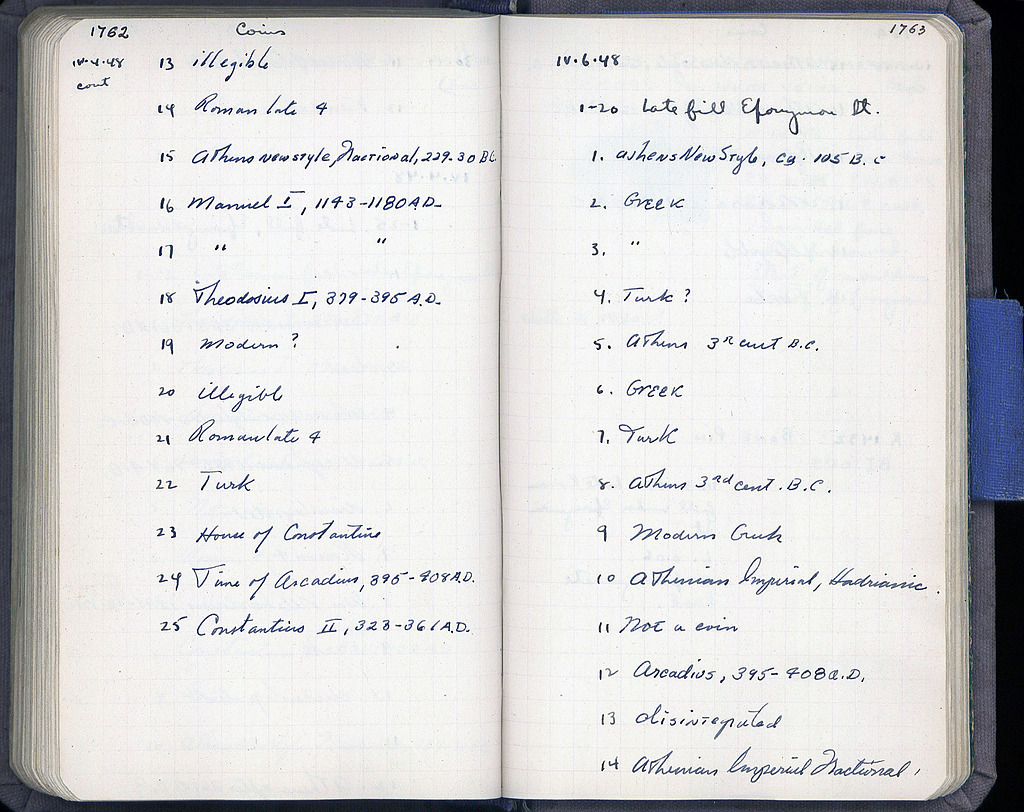 1762 Coins
IV·4·48
cont
13 illegible
14 Roman late 4
15 Athens new style, fractional, 229-30 B.C.
16 Manuel I, 1143-1180 A.D.
17 " "
18 Theodosius I, 379-395 A.D.
19 Modern?
20 illegible
21 Roman late 4
22 Turk
23 House of Constantine
24 Time of Arcadius, 395-408 A.D.
25 Constantius II, 323-361 A.D.
1763
IV·6·48
1-20 Late fill Eponymon St.
1. Athens New Style, ca. 105 B.C
2. Greek
3. "
4. Turk?
5. Athens 3rd cent B.C.
6. Greek
7. Turk
8. Athens 3rd cent. B.C.
9 Modern Greek
10 Athenian Imperial, Hadrianic.
11 Not a coin
12 Arcadius, 395-408 A.D.
13 disintegrated
14 Athenian Imperial Fractional,